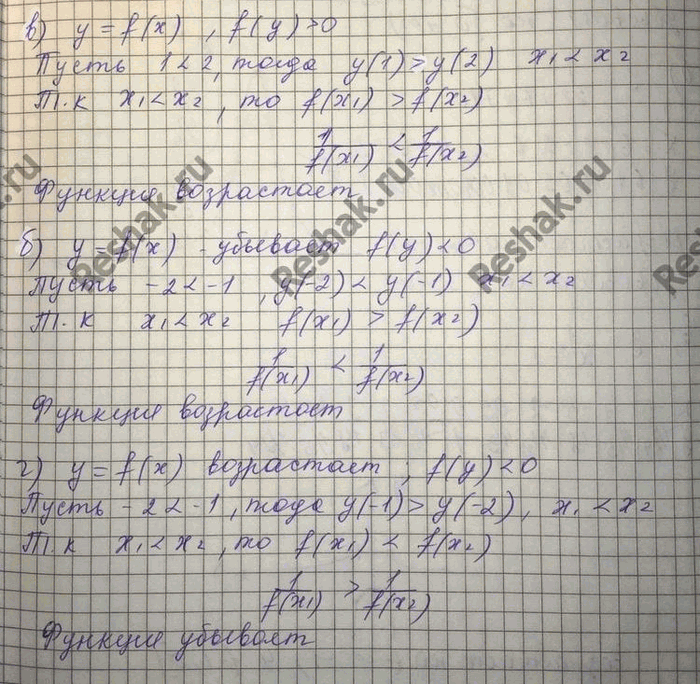 в) y = f(x) , f(y) > 0
Пусть 1 < 2, тогда y(1) > y(2) x₁ < x₂
Т.к x₁ < x₂ , то f(x₁) > f(x₂)
1/f(x₁) < 1/f(x₂)
Функция возрастает
б) y = f(x) - убывает f(y) < 0
Пусть -2 < -1 , y(-2) < y(-1) x₁ < x₂
Т.к x₁ < x₂ f(x₁) > f(x₂)
1/f(x₁) < 1/f(x₂)
Функция возрастает
г) y = f(x) возрастает ; f(y) < 0
Пусть -2 < -1, тогда y(-1) > y(-2), x₁ < x₂
Т.к x₁ < x₂, то f(x₁) < f(x₂)
1/f(x₁) > 1/f(x₂)
Функция убывает
Reshak.ru
Reshak.ru
Reshak.ru